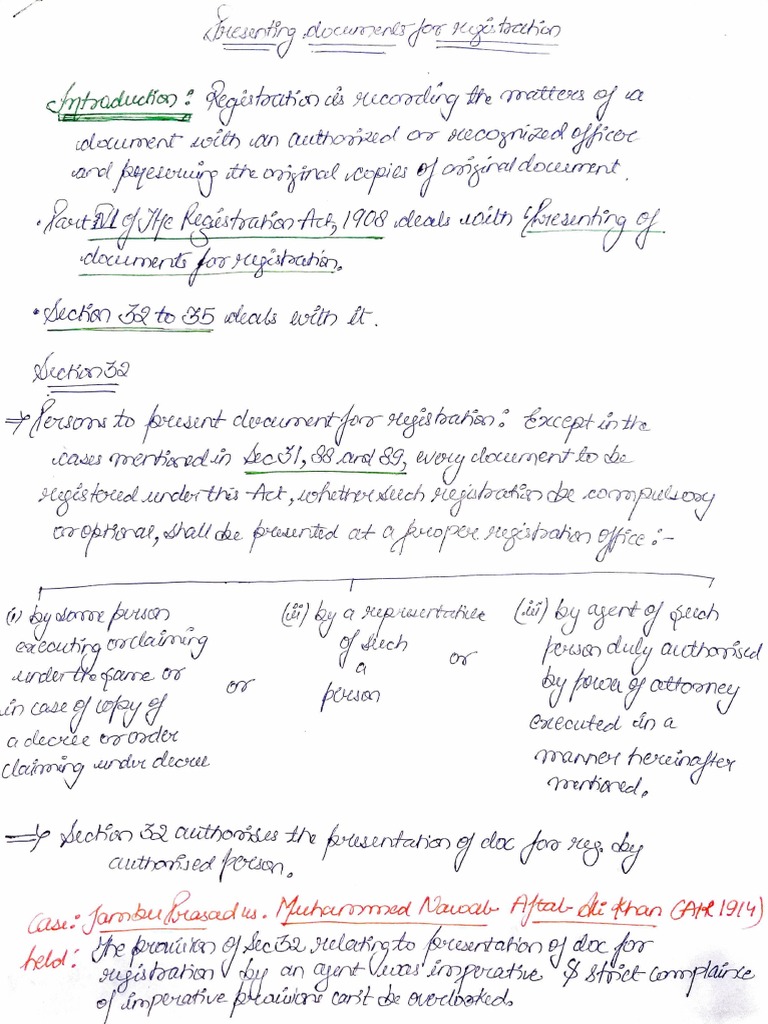 Presenting documents for registration
Introduction: Registration is recording the matters of a
document with an authorized or recognized officer
and preserving the original copies of original document.
• Part VI of The Registration Act, 1908 deals with "Presenting of
documents for registration.
• Section 32 to 35 deals with it.
Section 32
⇒ Persons to present document for registration: Except in the
cases mentioned in Sec 31, 88 and 89, every document to be
registered under this Act, whether such registration be compulsory
or optional, shall be presented at a proper registration office :-
(i) by some person
executing or claiming
under the same or
in case of copy of
a decree or order
claiming under decree
or
(ii) by a representative
of such
a
person
or
(iii) by agent of such
person duly authorised
by power of attorney
executed in a
manner hereinafter
mentioned.
⇒ Section 32 authorises the presentation of doc for reg. by
authorised person.
Case: Jambu Prasad vs. Muhammed Nawab Aftab Ali Khan (AIR 1914)
held: the provision of Sec 32 relating to presentation of doc for
registration by an agent was imperative & strict complaince
of imperative provisions can't be overlooked.